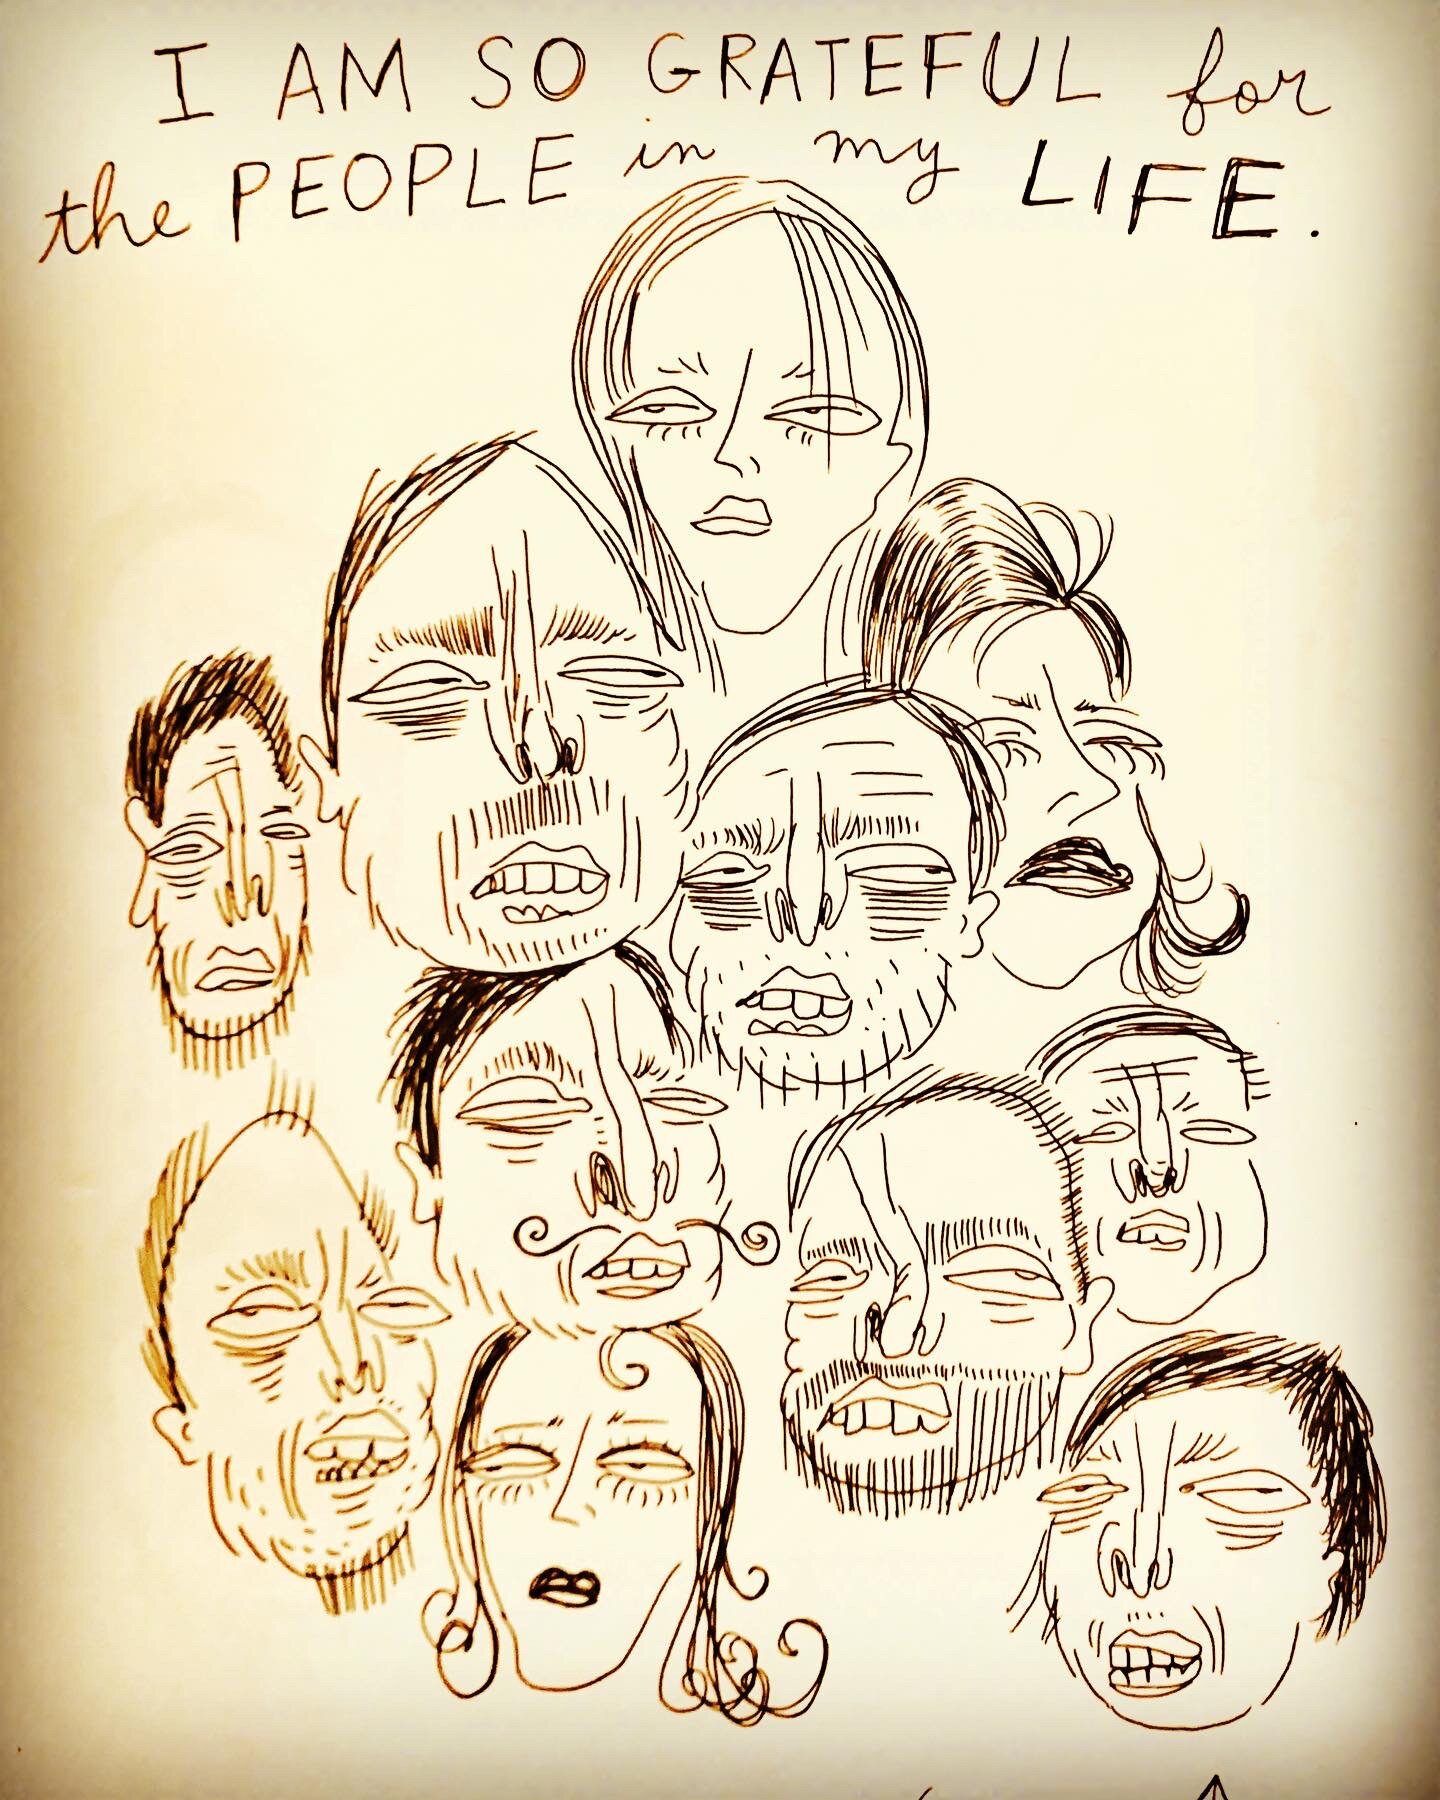 I AM SO GRATEFUL for
the PEOPLE in my LIFE.